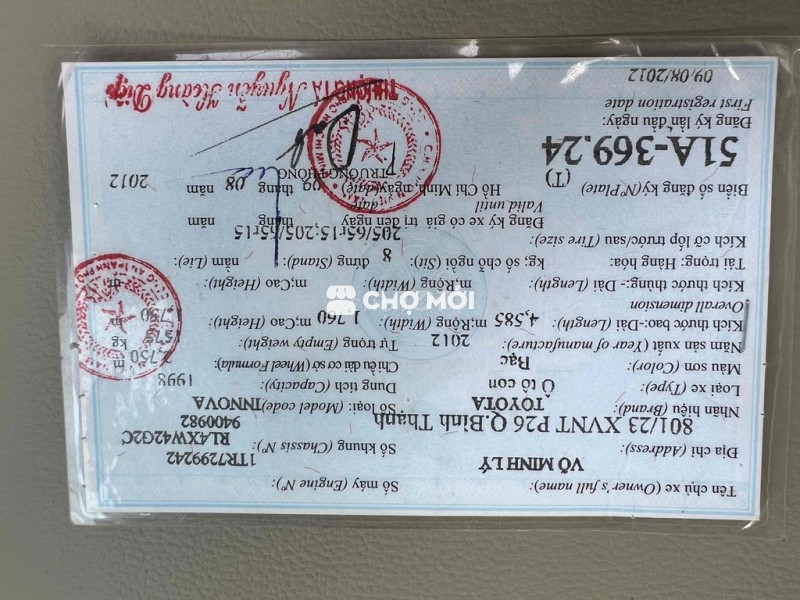 Tên chủ xe (Owner's full name):
VÕ MINH LÝ
Địa chỉ (Address):
801/23 XVNT P26 Q.Bình Thạnh
Nhãn hiệu (Brand): TOYOTA
Loại xe (Type): Ô tô con
Màu sơn (Color): Bạc
Năm sản xuất (Year of manufacture): 2012
Số máy (Engine Nº): 1TR7299242
Số khung (Chassis Nº): RL4XW42G2C
9400982
Số loại: (Model code) INNOVA
Dung tích (Capacity): 1998
Chiều dài cơ sở (Wheel Formula): 2,750 m
Tự trọng (Empty weight): kg
Kích thước bao:-Dài (Length) 4,585 m;Rộng (Width) 1,760 m;Cao (Height): 1,750 m
Overall dimension
Kích thước thùng:- Dài (Length): m;Rộng (Width): m;Cao (Height):
Tải trọng: Hàng hóa: kg; số chỗ ngồi (Sit): 8 đứng (Stand): nằm (Lie):
Kích cỡ lốp trước/sau (Tire size): 205/65r15;205/65r15
Đăng ký xe có giá trị đến ngày tháng năm
Valid until date
Biển số đăng ký (Nº Plate)
51A-369.24
(T)
Đăng ký lần đầu ngày:
First registration date
09/08/2012
Hồ Chí Minh, ngày (date) 09 tháng 08 năm 2012
TRƯỞNG PHÒNG
THƯỢNG TÁ Nguyễn Hoàng Điệp
CHỢ MỚI